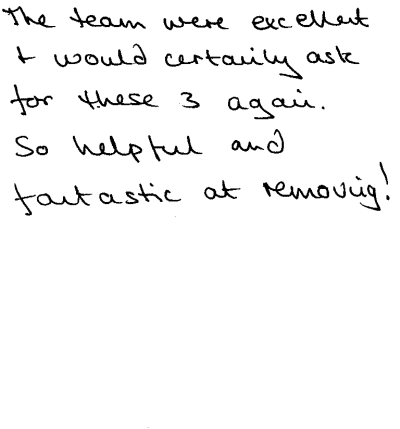 The team were excellent
+ would certainly ask
for these 3 again.
So helpful and
fantastic at removing!